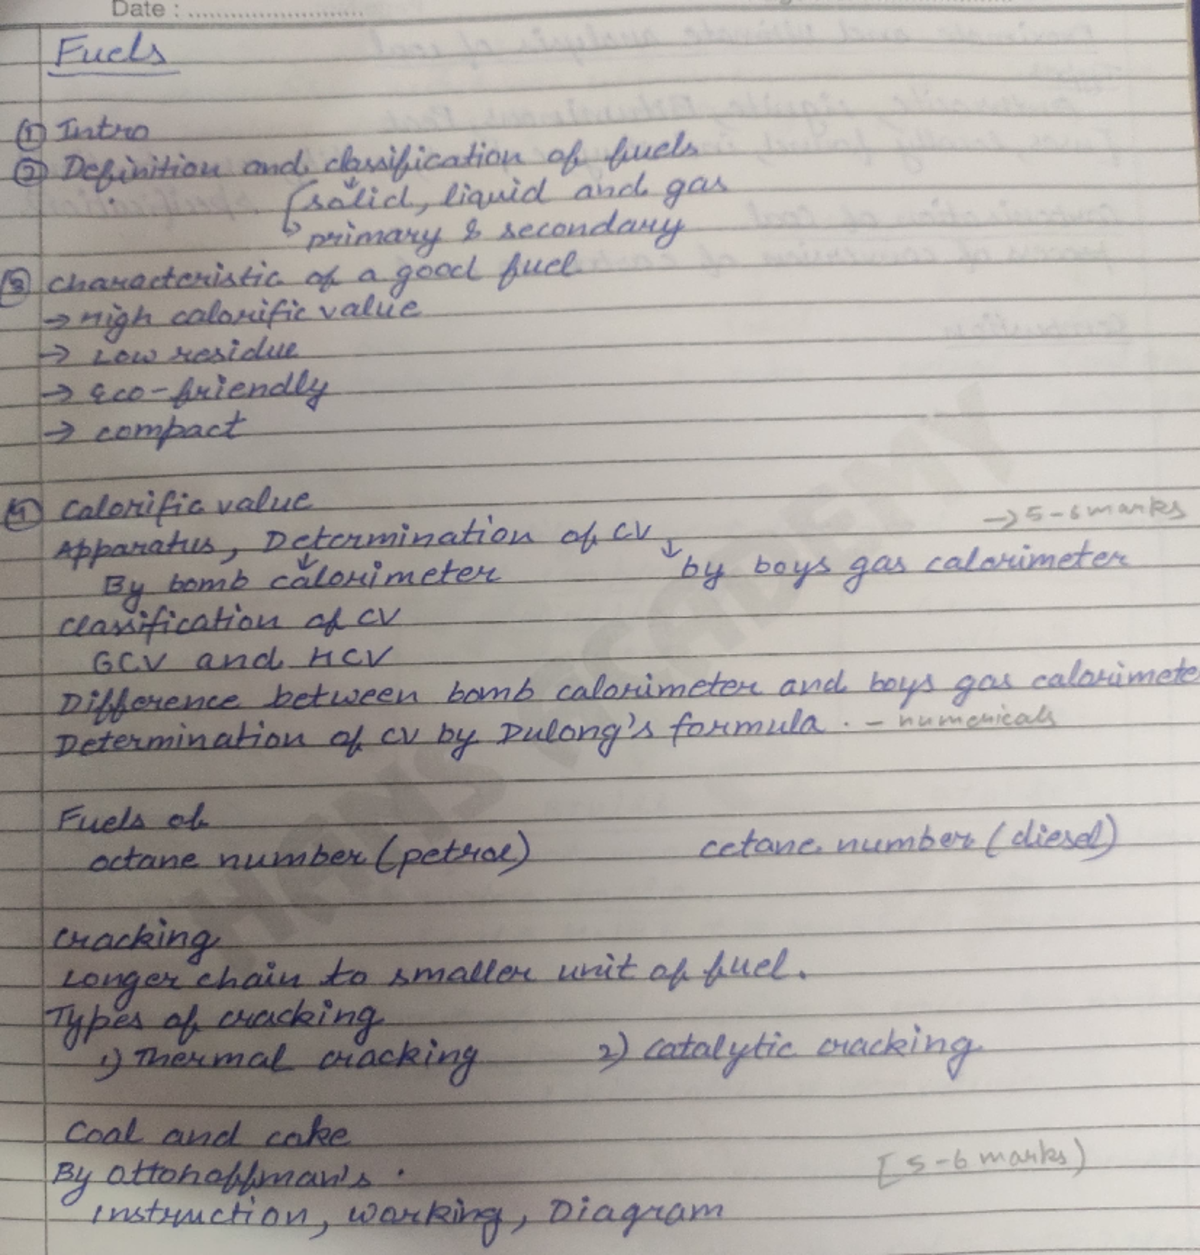 Date :
Fuels
① Intro
② Definition and classification of fuels
solid, liquid and gas
primary & secondary
③ characteristic of a good fuel
→ High calorific value
→ Low residue
→ Eco-friendly
→ compact
④ Calorific value
→ 5-6 marks
Apparatus, Determination of CV
By bomb calorimeter
by boys gas calorimeter
classification of CV
GCV and HCV
Difference between bomb calorimeter and boys gas calorimete
Determination of CV by Dulong's formula. - numericals
Fuels of
octane number (petrol) cetane number (diesel)
Cracking
Longer chain to smaller unit of fuel.
Types of cracking
1) Thermal cracking 2) catalytic cracking
Coal and coke
[5-6 marks)
By ottohoffman's .
instruction, working, Diagram
HANS ACADEMY